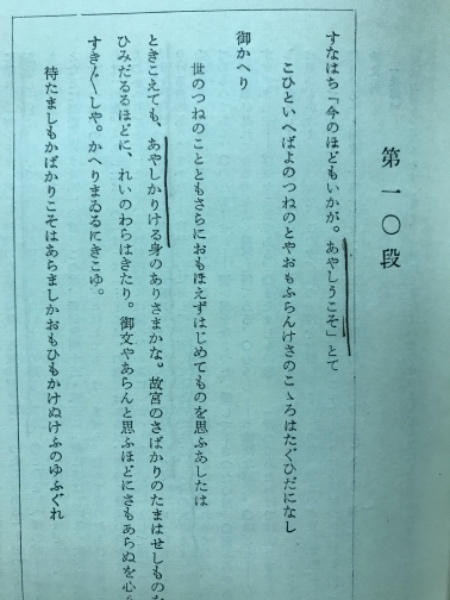 第一〇段
すなはち「今のほどもいかが。あやしうこそ」とて
こひといへばよのつねのとやおもふらんけさのこゝろはたぐひだになし
御かへり
世のつねのことともさらにおもほえずはじめてものを思ふあしたは
ときこえても、あやしかりける身のありさまかな。故宮のさばかりのたまはせしものを
ひみだるるほどに、れいのわらはきたり。御文やあらんと思ふほどにさもあらぬを心う
すき〴〵しや。かへりまゐるにきこゆ。
待たましもかばかりこそはあらましかおもひもかけぬけふのゆふぐれ